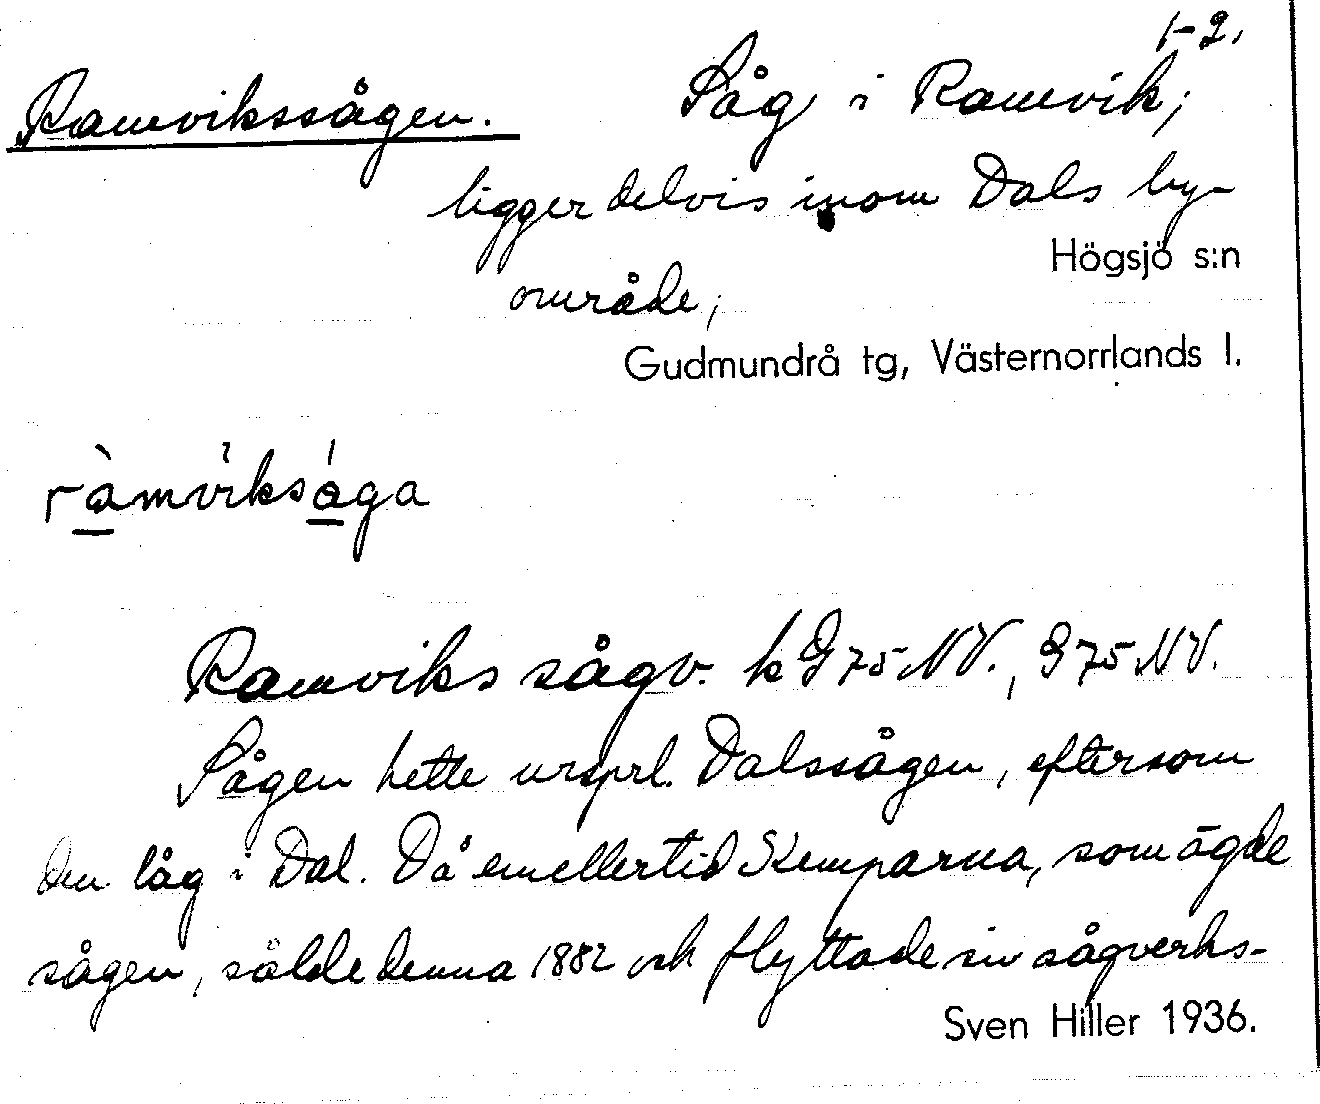 1-2.
Ramvikssågen. Såg i Ramvik;
ligger delvis inom Dals by-
Högsjö s:n
område;
Gudmundrå tg, Västernorrlands l.
ràmvìksága
Ramviks sågv. k G 75 NV., G 75 NV.
Sågen hette ursprl. Dalssågen, eftersom
den låg i Dal. Då emellertid Kemparna, som ägde
sågen, sålde denna 1882 och flyttade sin sågverks-
Sven Hiller 1936.